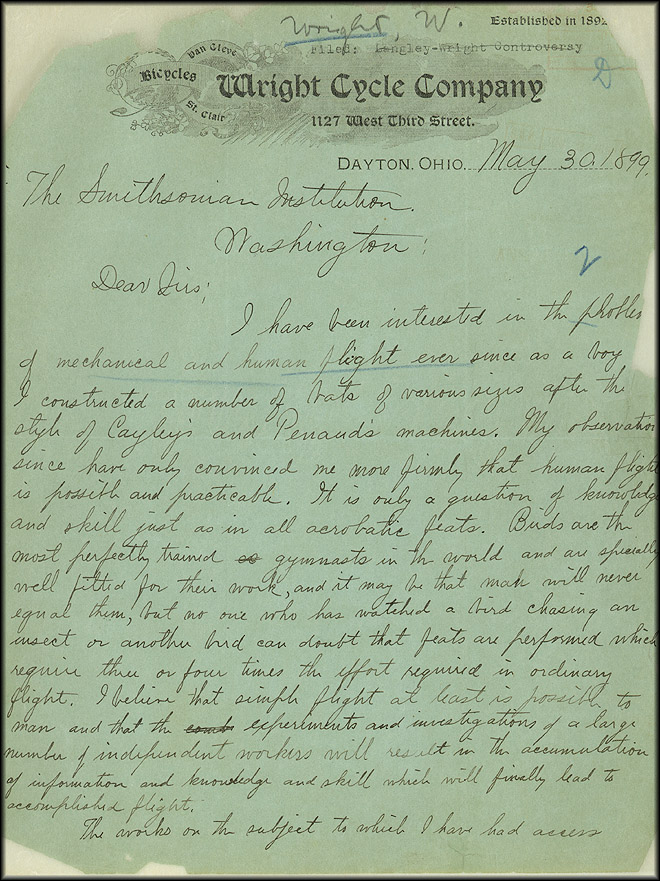 Wright, W.
Established in 189
Filed: Langley-Wright Controversy
Van Cleve
Bicycles
St. Clair
Wright Cycle Company
1127 West Third Street.
DAYTON, OHIO. May 30, 1899.
The Smithsonian Institution.
Washington;
2
Dear Sirs;
I have been interested in the problem
of mechanical and human flight ever since as a boy
I constructed a number of bats of various sizes after the
style of Cayley's and Penaud's machines. My observations
since have only convinced me more firmly that human flight
is possible and practicable. It is only a question of knowledge
and skill just as in all acrobatic feats. Birds are the
most perfectly trained gymnasts in the world and are specially
well fitted for their work, and it may be that man will never
equal them, but no one who has watched a bird chasing an
insect or another bird can doubt that feats are performed which
require three or four times the effort required in ordinary
flight. I believe that simple flight at least is possible to
man and that the experiments and investigations of a large
number of independent workers will result in the accumulation
of information and knowledge and skill which will finally lead to
accomplished flight.
The works on the subject to which I have had access